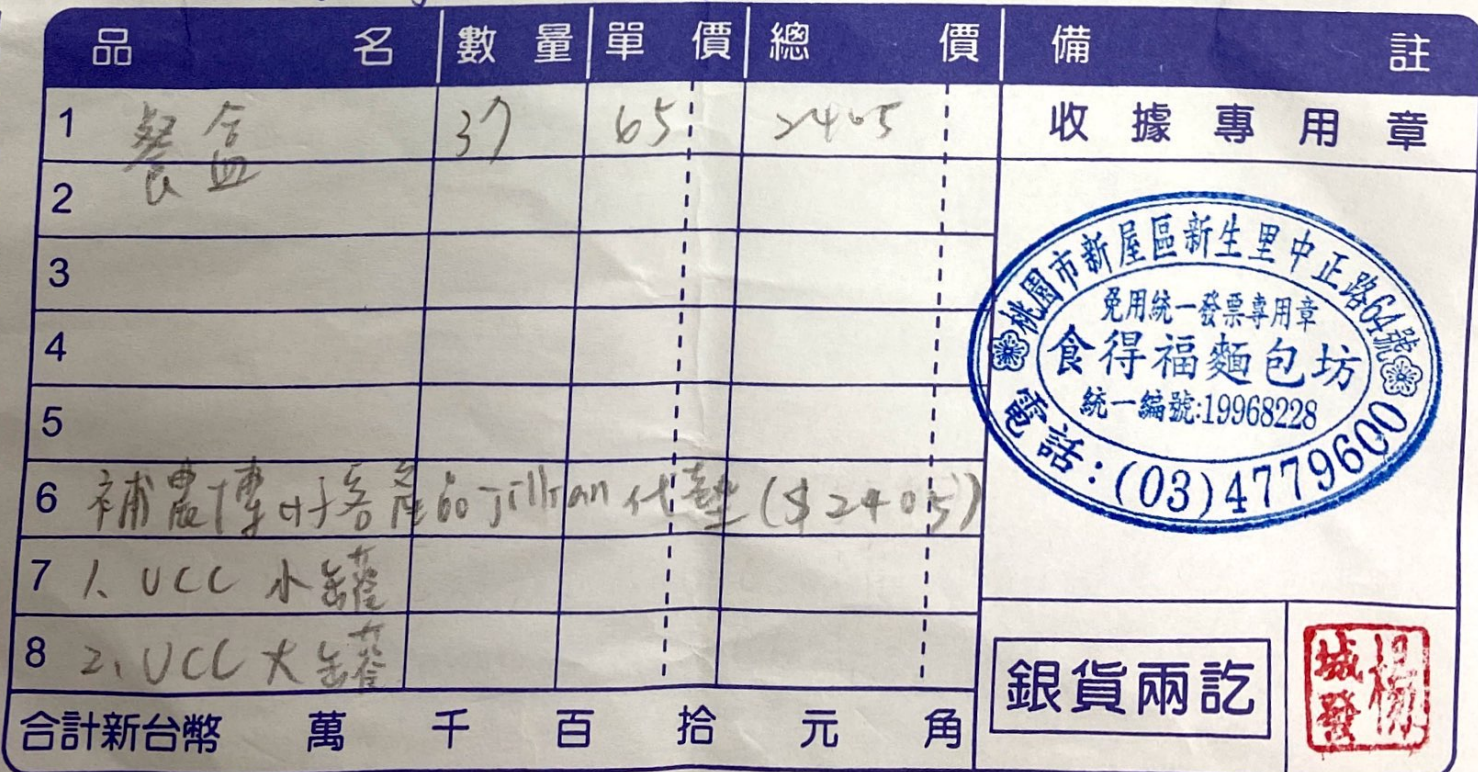 品名 數量 單價 總價 備註
1 餐盒 37 65 2405 收據專用章
2
3
4
5
6 補農博 Jillian 代墊($2405)
7 1、UCC 小罐
8 2、UCC 大罐
合計新台幣 萬 千 百 拾 元 角
桃園市新屋區新生里中正路64號
免用統一發票專用章
食得福麵包坊
統一編號:19968228
電話:(03)4779600
銀貨兩訖
楊城發